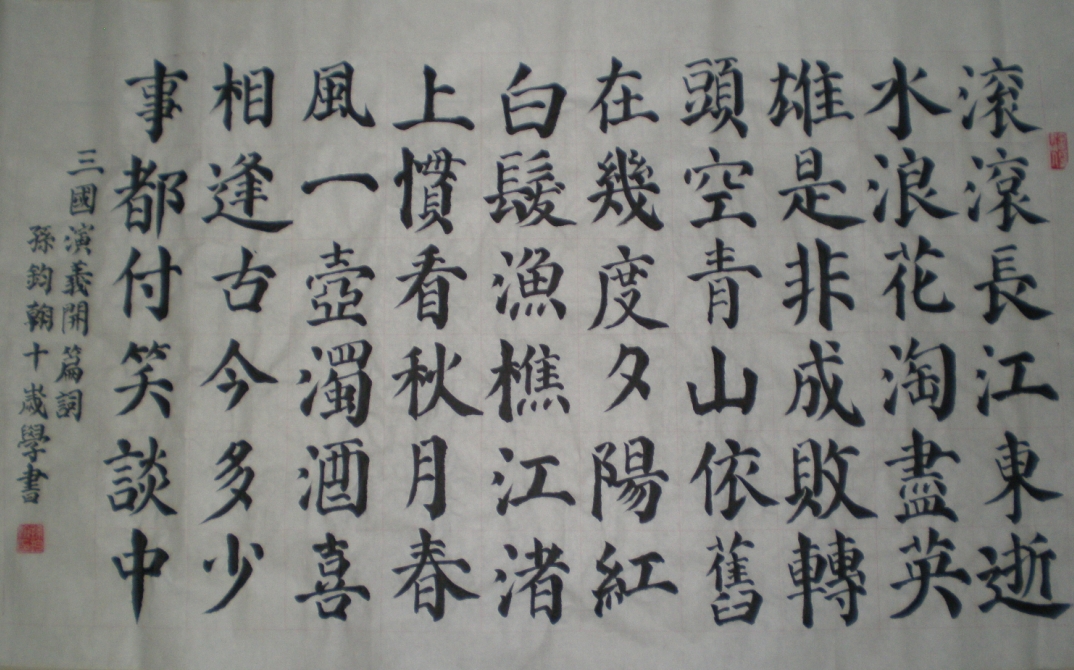 滚滾長江東逝
水浪花淘盡英
雄是非成敗轉
頭空青山依舊
在幾度夕陽紅
白髮漁樵江渚
上慣看秋月春
風一壺濁酒喜
相逢古今多少
事都付笑談中
三國演義開篇詞
孫鈞翰十歲學書